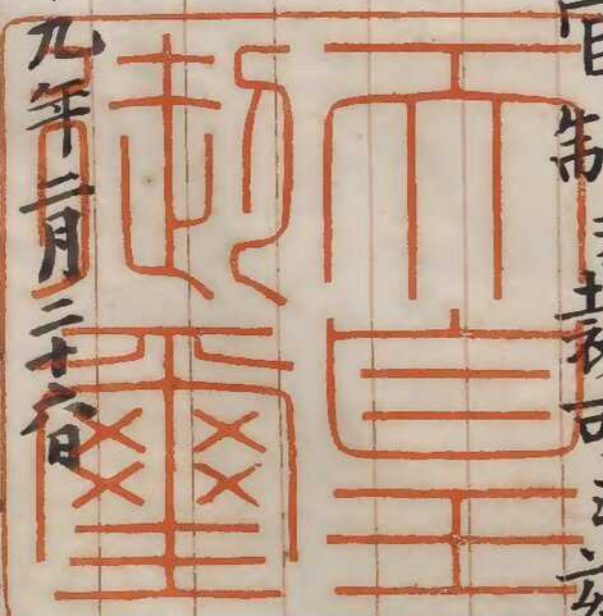 官制ヲ裁可シ茲
天皇
御璽
九年三月二十六日